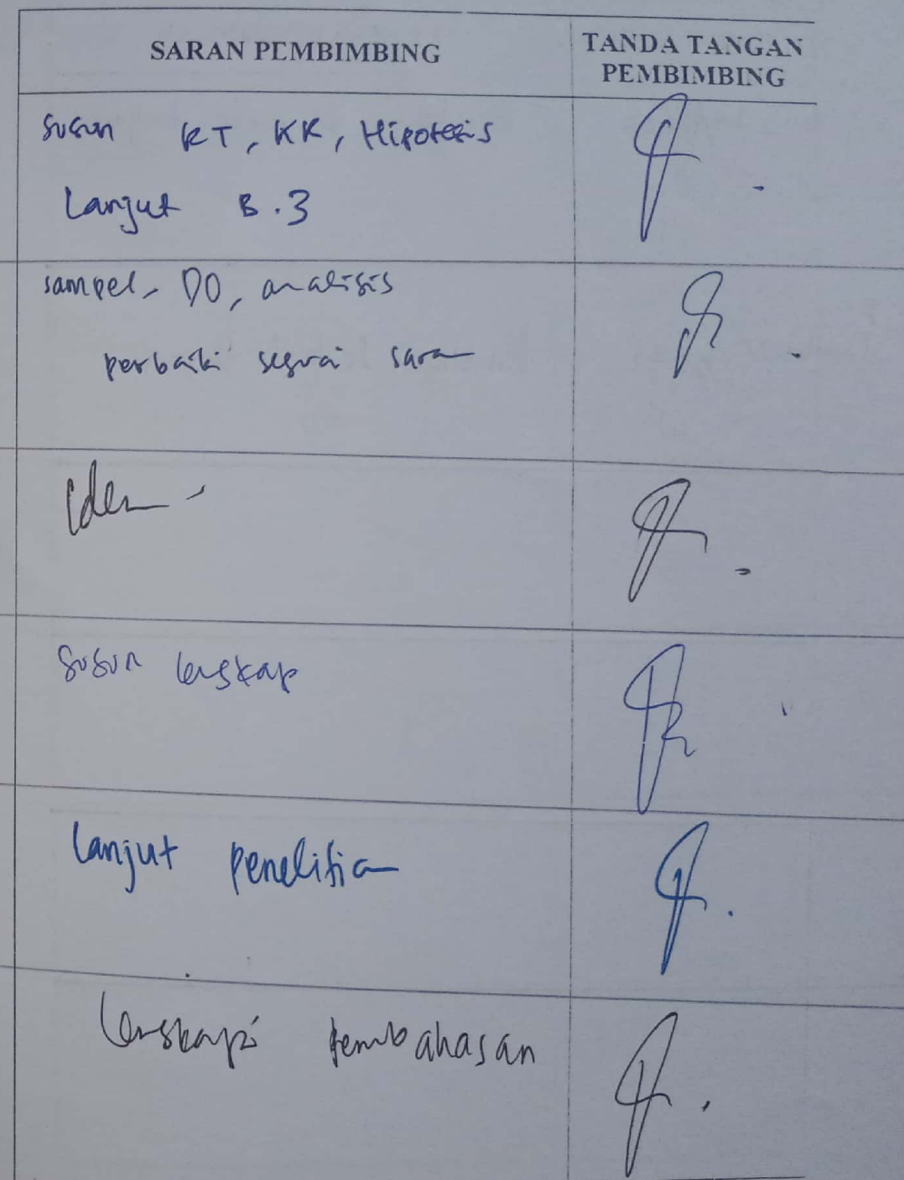 SARAN PEMBIMBING
TANDA TANGAN
PEMBIMBING
Susun KT, KK, Hipotesis
Lanjut B.3
sampel, DO, analisis
perbaiki sesuai saran
idem
Susun lengkap
Lanjut penelitian
Lengkapi pembahasan